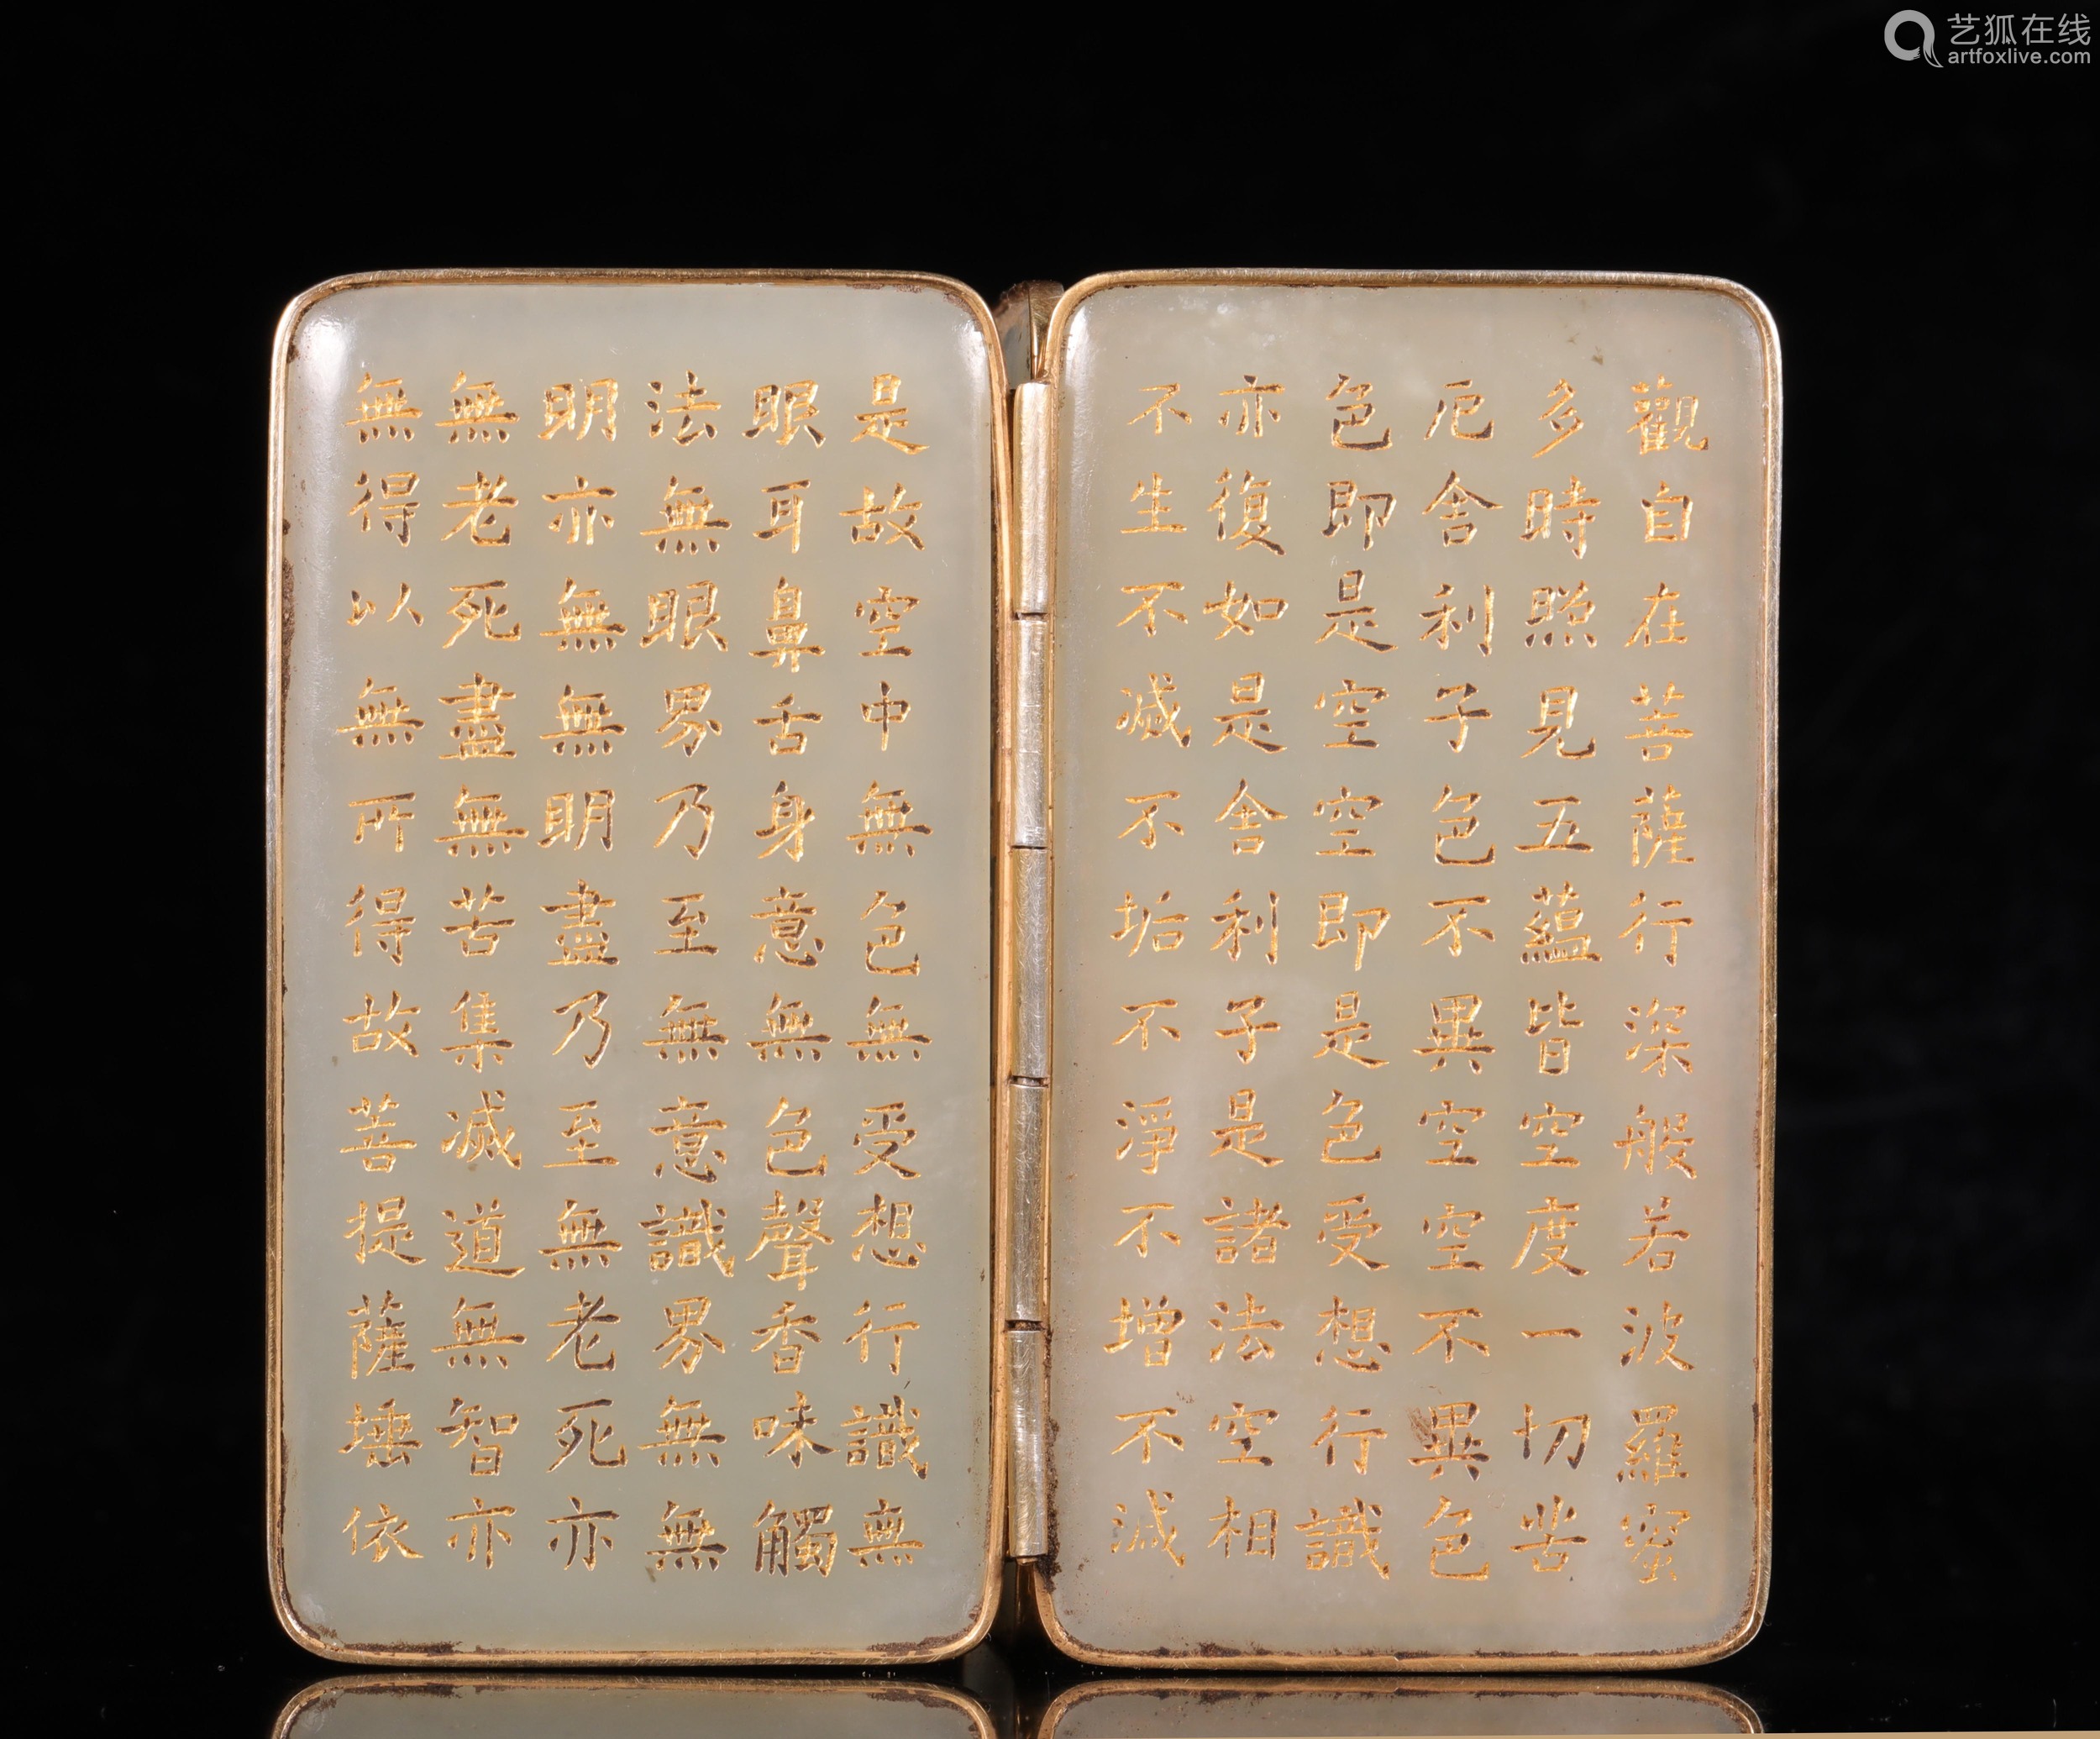 觀自在菩薩行深般若波羅蜜
多時照見五蘊皆空度一切苦
厄舍利子色不異空空不異色
色即是空空即是色受想行識
亦復如是舍利子是諸法空相
不生不滅不垢不淨不增不滅
是故空中無色無受想行識無
眼耳鼻舌身意無色聲香味觸
法無眼界乃至無意識界無無
明亦無無明盡乃至無老死亦
無老死盡無苦集滅道無智亦
無得以無所得故菩提薩埵依
艺狐在线
artfoxlive.com